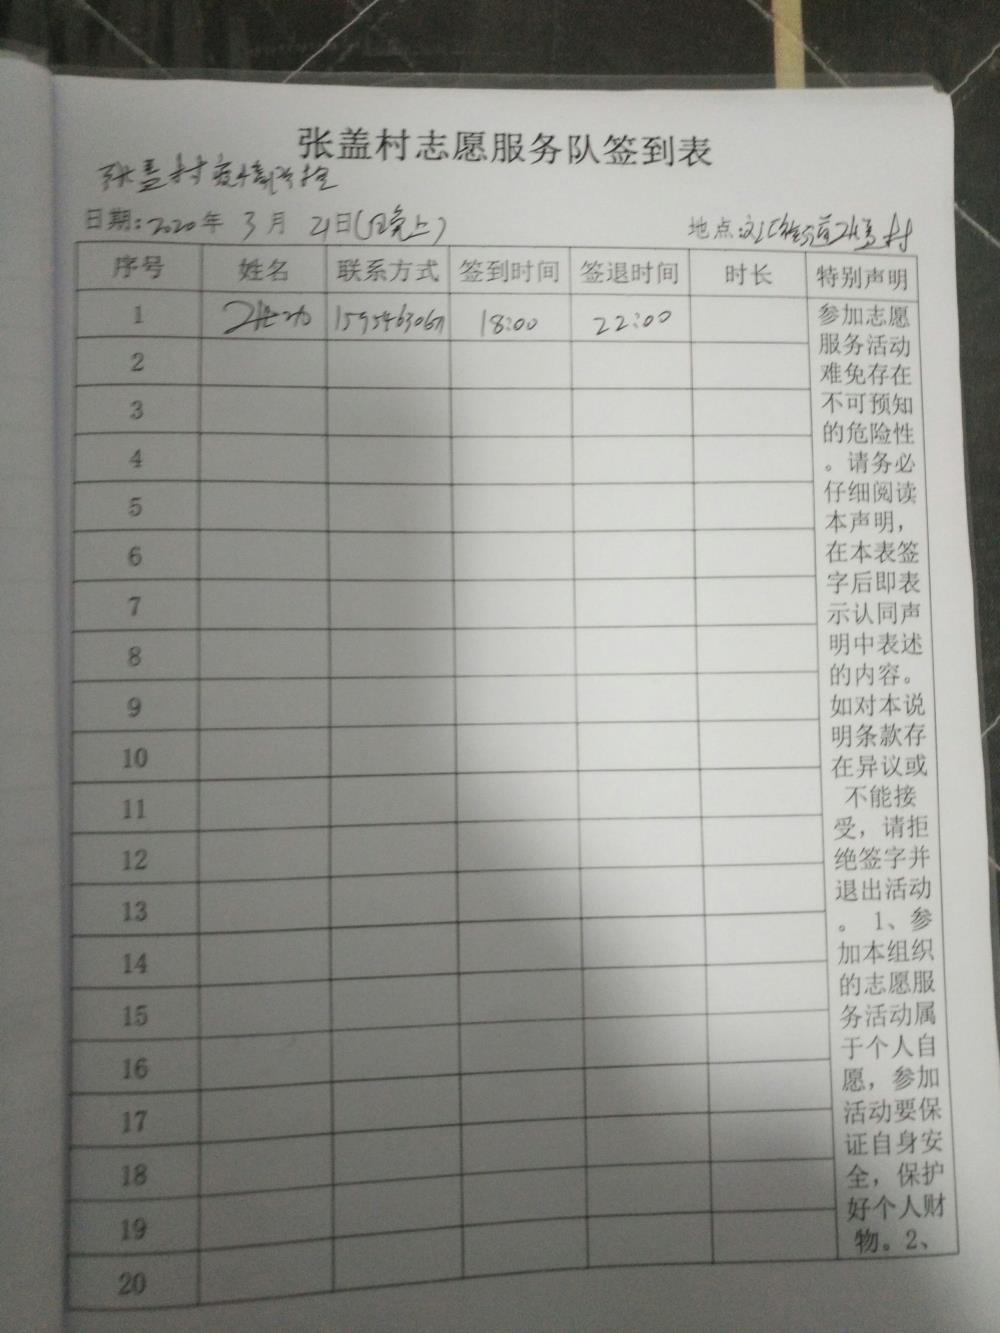 张盖村志愿服务队签到表
张盖村疫情
日期:2020年 3月 21日(晚上)
地点: 村
序号 姓名 联系方式 签到时间 签退时间 时长 特别声明
1 18:00 22:00
2
3
4
5
6
7
8
9
10
11
12
13
14
15
16
17
18
19
20
参加志愿
服务活动
难免存在
不可预知
的危险性
。请务必
仔细阅读
本声明，
在本表签
字后即表
示认同声
明中表述
的内容。
如对本说
明条款存
在异议或
不能接
受，请拒
绝签字并
退出活动
。 1、参
加本组织
的志愿服
务活动属
于个人自
愿，参加
活动要保
证自身安
全，保护
好个人财
物。2、